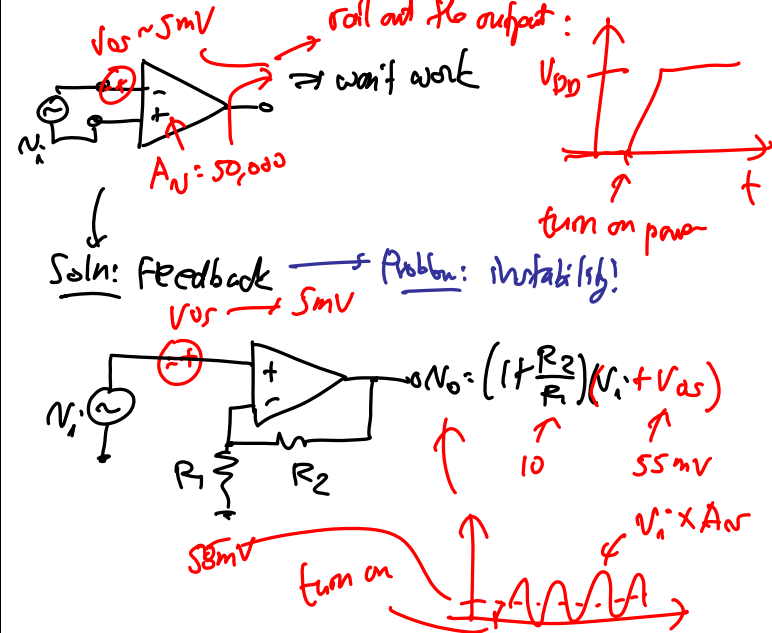 Vos ~ 5mV
rail out the output :
⇒ won't work
VDD
-
+
vi
Av = 50,000
t
turn on power
Soln: Feedback → Problem: instability!
Vos → 5mV
- +
+
-
vi
vo = (1 + R2/R1)(vi + Vos)
R1
R2
10
55mV
vi × Av
turn on